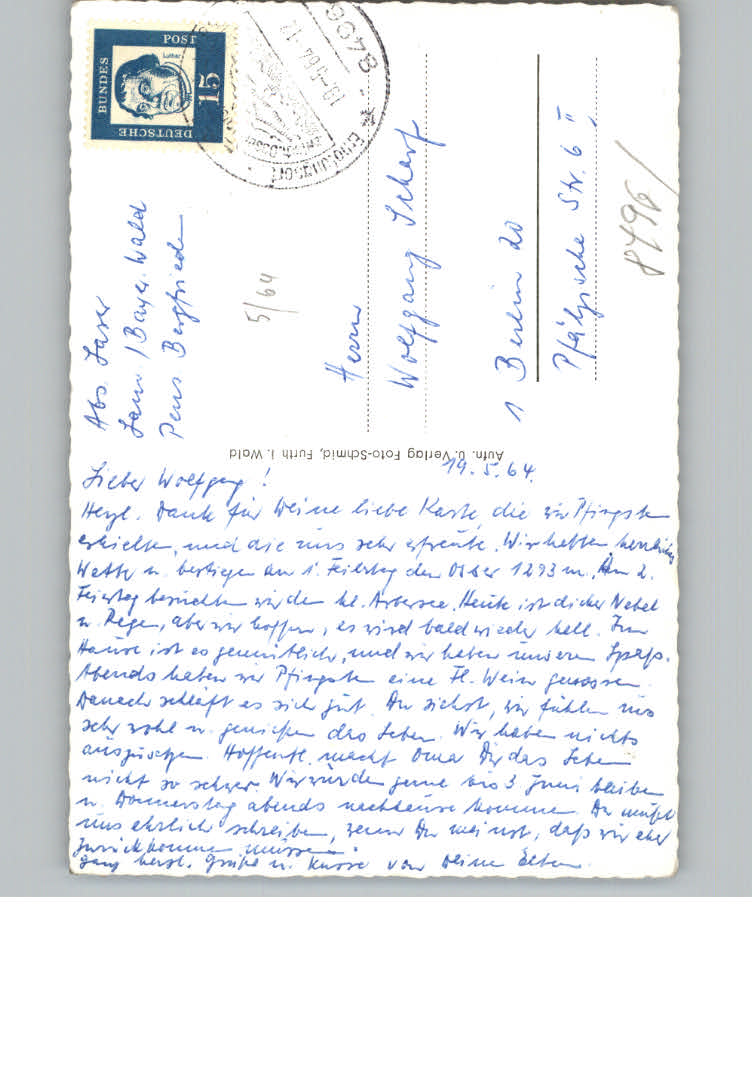 DEUTSCHE
BUNDES
POST
15
Luther
8496
19.5.64-12
5/64
Abs. Laser
Lam / Bayer. Wald
Pens Bergfrieden
Herrn
Wolfgang Scharf
1 Berlin 20
Pfälzische Str. 6 II
8496/
Aufn. u. Verlag Foto-Schmid, Furth i. Wald
19.5.64.
Lieber Wolfgang!
Herzl. Dank für Deine liebe Karte, die wir Pfingsten
erhielten, und die uns sehr erfreute. Wir hatten herrliches
Wetter u. bestiegen am 1. Feiertag den Osser 1293 m. Am 2.
Feiertag besuchten wir den kl. Arbersee. Heute ist dicker Nebel
u. Regen, aber wir hoffen, es wird bald wieder hell. Im
Hause ist es gemütlich, und wir haben unseren Spaß.
Abends haben wir Pfingsten eine Fl. Wein genossen.
Danach schläft es sich gut. Du siehst, wir fühlen uns
sehr wohl u. genießen das Leben. Wir haben nichts
auszusetzen. Hoffentl. macht Oma Dir das Leben
nicht so schwer. Wir würden gerne bis 3 Juni bleiben
u. Donnerstag abends nachhause kommen. Du mußt
uns ehrlich schreiben, wenn Du meinst, daß wir eher
zurückkommen müssen.
Ganz herzl. Grüße u. Küsse von Deinen Eltern.